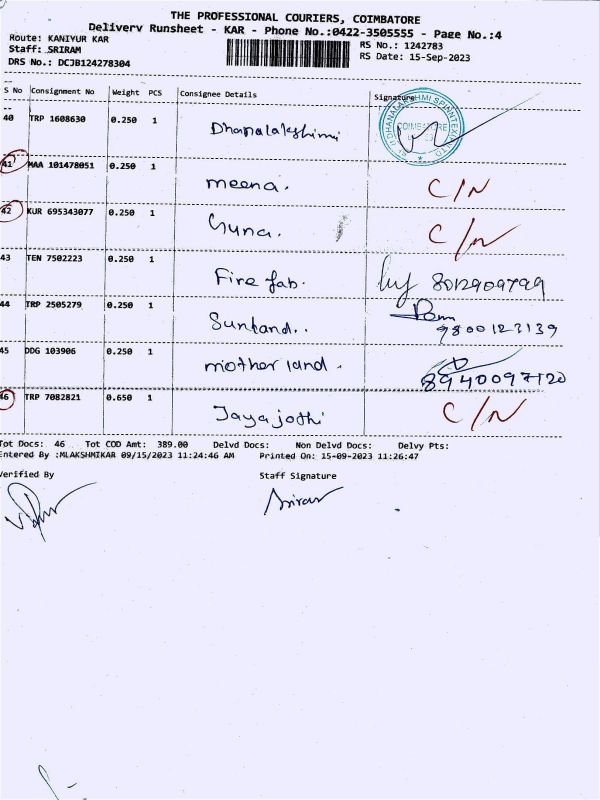 THE PROFESSIONAL COURIERS, COIMBATORE
Delivery Runsheet - KAR - Phone No.:0422-3505555 - Page No.:4
Route: KANIYUR KAR
RS No.: 1242783
Staff: SRIRAM
RS Date: 15-Sep-2023
DRS No.: DCJB124278304
S No Consignment No Weight PCS Consignee Details Signature
40 TRP 1608630 0.250 1 Dhanalakshimi
COIMBATORE
41 MAA 101478051 0.250 1 meena. C/N
42 KUR 695343077 0.250 1 Guna. C/N
43 TEN 7502223 0.250 1 Fire fab. 8012909799
44 TRP 2505279 0.250 1 Sunland.. 9800123139
45 DDG 103906 0.250 1 mother land. 8940097120
46 TRP 7082821 0.650 1 Jayajothi C/N
Tot Docs: 46 Tot COD Amt: 389.00 Delvd Docs: Non Delvd Docs: Delvy Pts:
Entered By :MLAKSHMIKAR 09/15/2023 11:24:46 AM Printed On: 15-09-2023 11:26:47
Verified By Staff Signature
Sriram